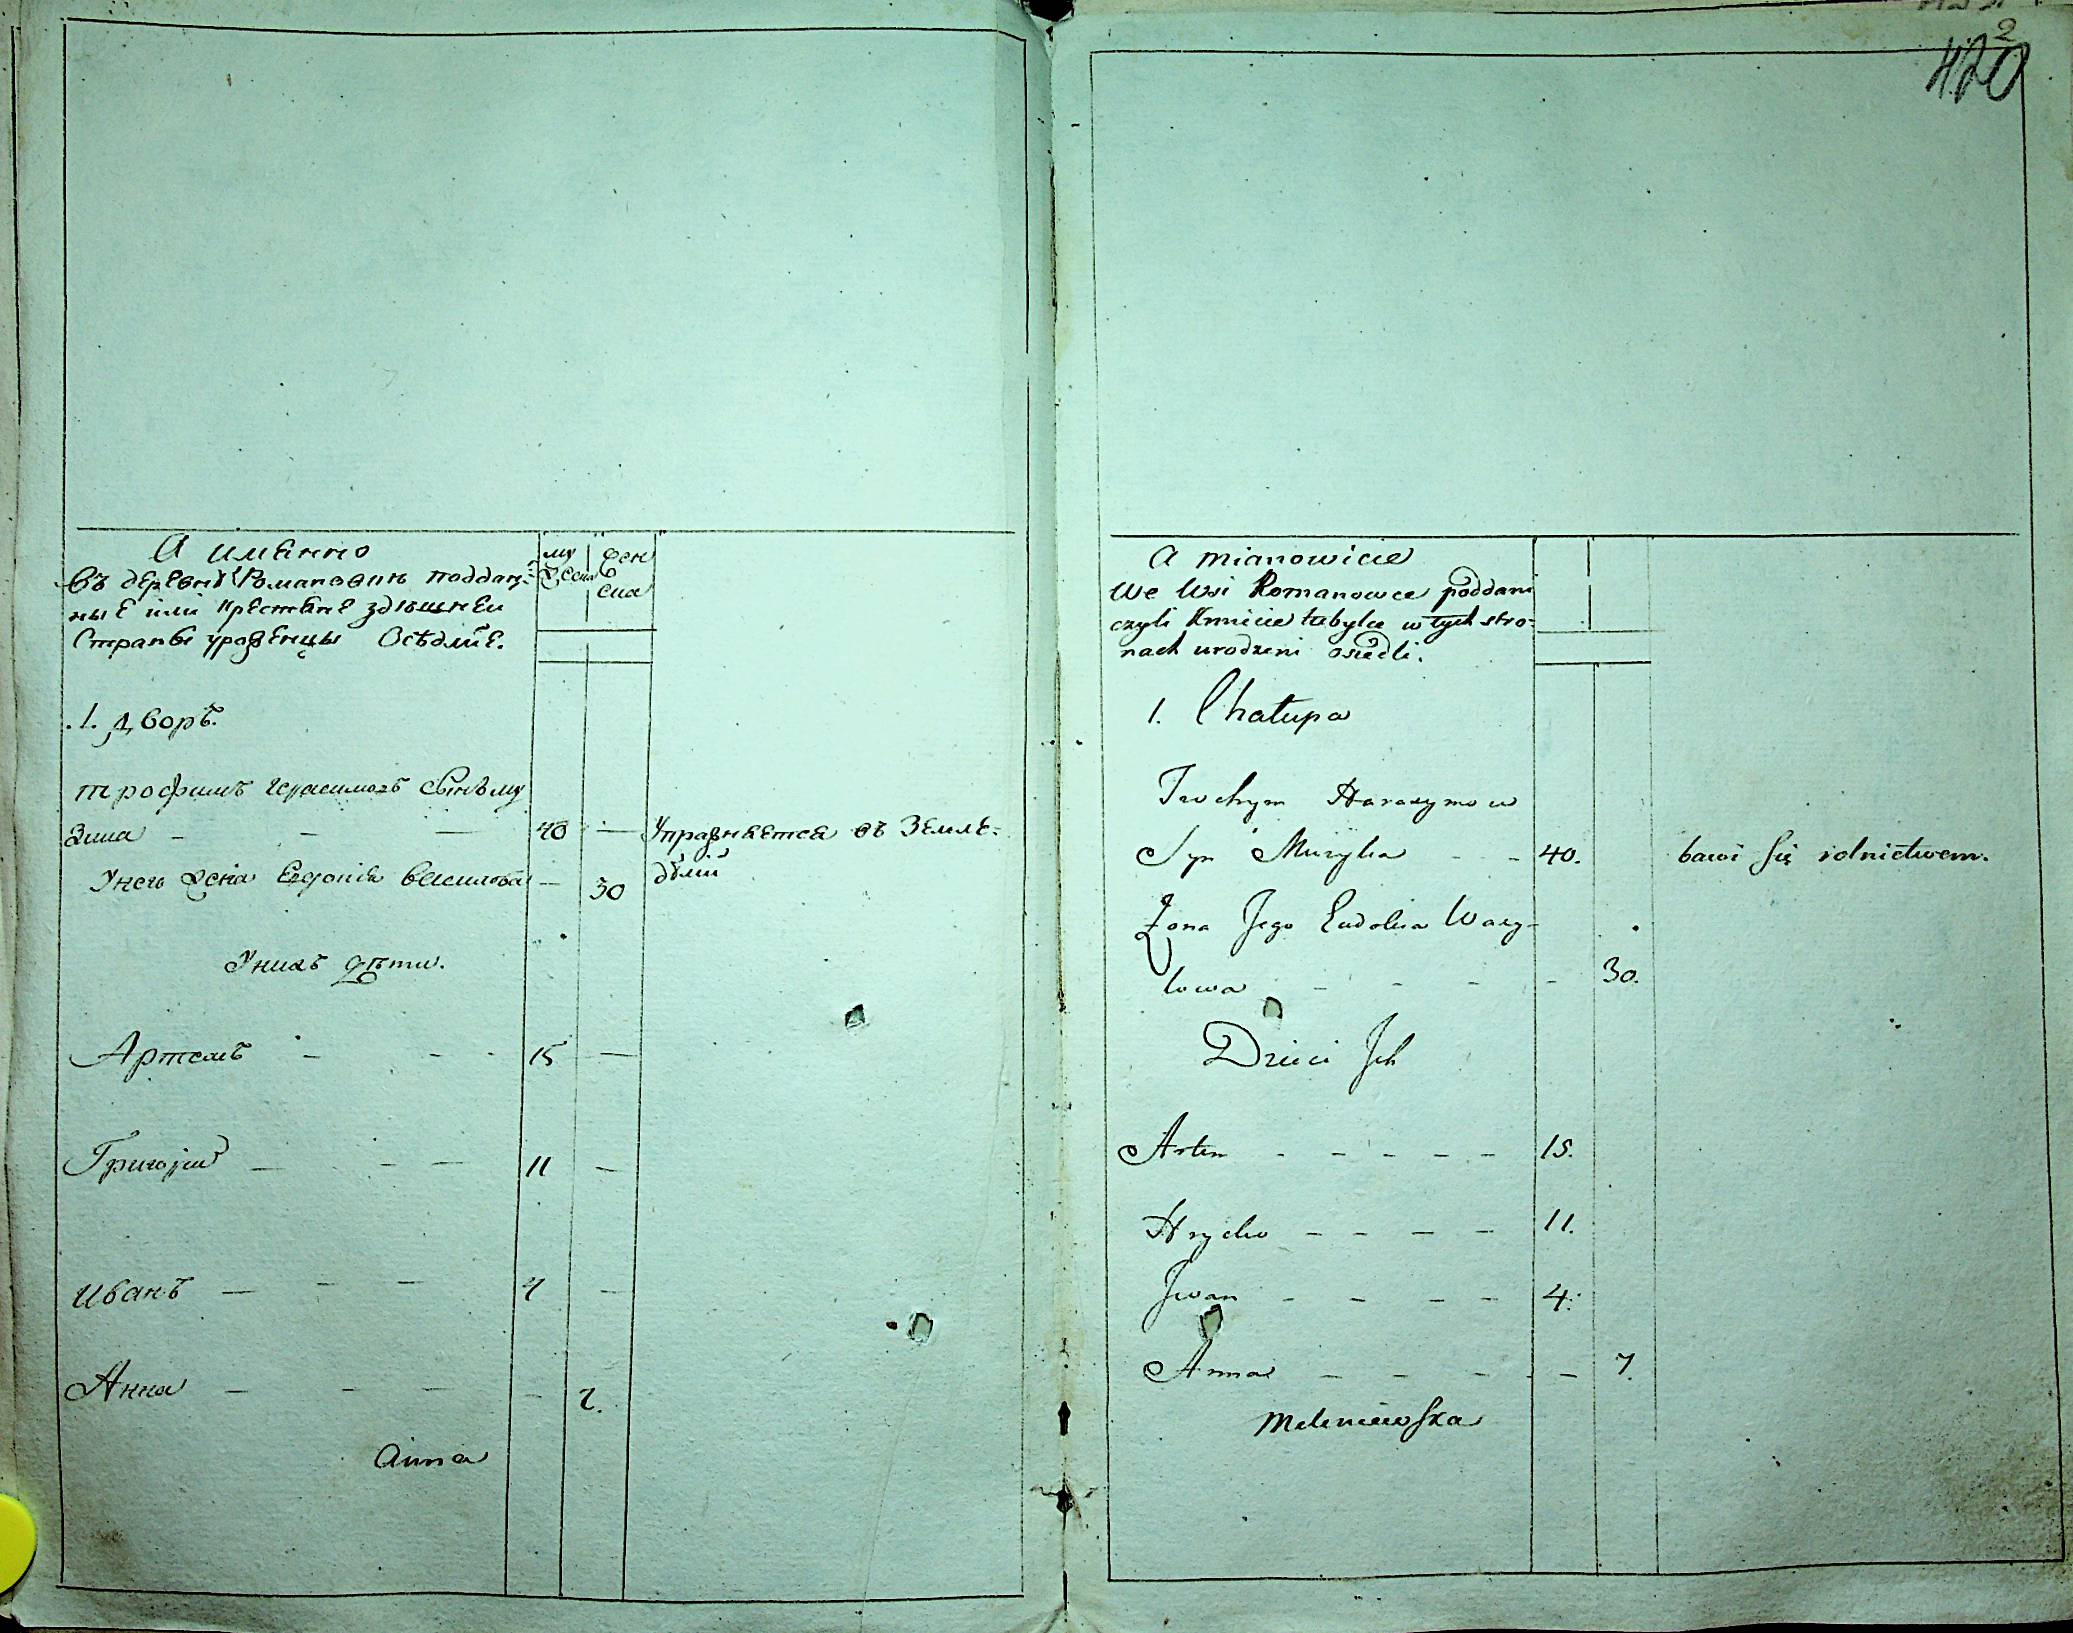 А имѣнно
Въ деревнѣ Романовки поддан-
ныЕ или крестянЕ здѣшнеи
Страны уроженцы Осѣдлые.
му
жеска
жен
ска
.1. Дворъ.
трофимъ Герасимовъ сынъ му
зика — — — 40 —
Упражняется въ Земле-
дѣлій
У него жена Евдокія василова — 30
У нихъ дѣти.
Артемъ — — - 15 —
Григорій — - — 11 —
Иванъ — — — 4 —
Анна — — — — 7.
Anna
2
420
A mianowicie
We Wsi Romanowce poddani
czyli Kmiecie tubylce w tych stro-
nach urodzeni osiedli.
1. Chałupa
Trochym Harasymow
Syn Muzyka - - - 40. bawi się rolnictwem.
Żona Jego Eudokia Wasy-
lowa - - - - - 30.
Dzieci Jch
Artem - - - - - 15.
Hryćko - - - - 11.
Jwan - - - - 4.
Anna - - - - - 7.
Meleniewska